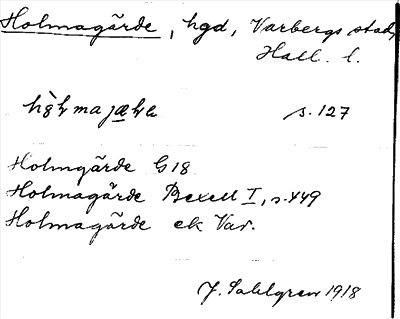 Holmagärde, hgd, Varbergs stad,
Hall. l.
s. 127
Holmgärde G18
Holmagärde Bexell I, s. 449
Holmagärde ek Var.
J. Sahlgren 1918